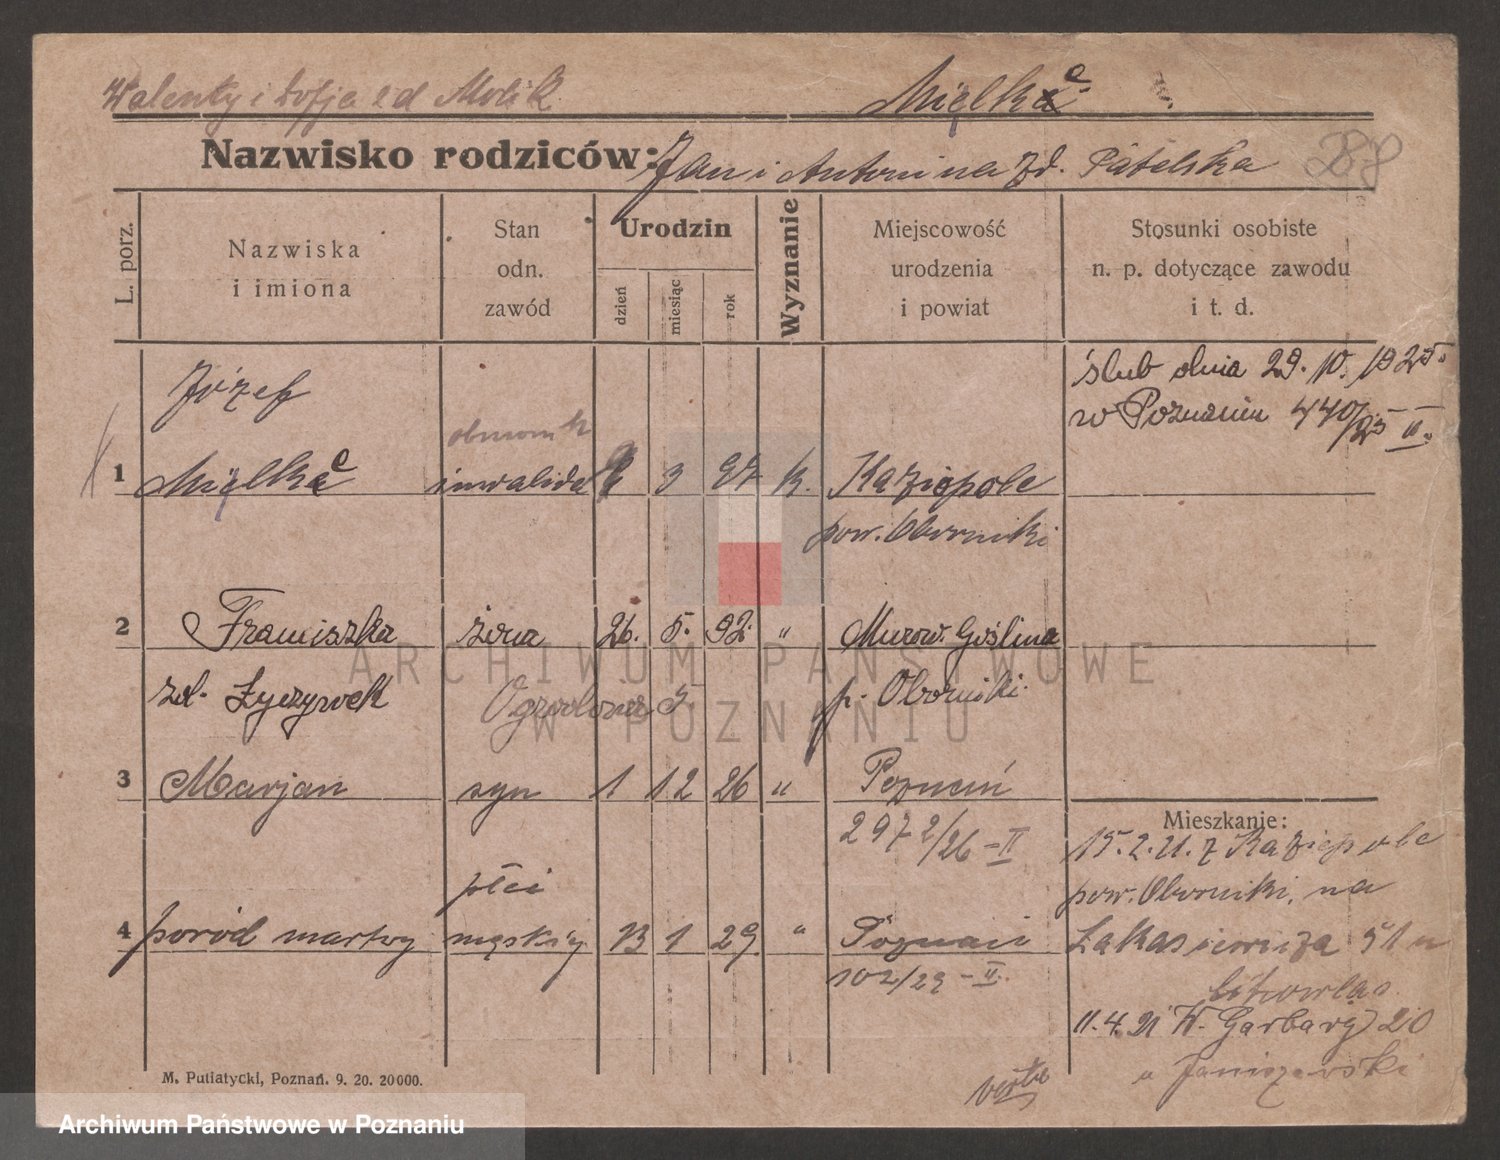 Walenty i Zofja zd Molik
Mielke
Nazwisko rodziców: Jan i Antonina zd. Patelska
288
L. porz.
Nazwiska
i imiona
Stan
odn.
zawód
Urodzin
dzień
miesiąc
rok
Wyznanie
Miejscowość
urodzenia
i powiat
Stosunki osobiste
n. p. dotyczące zawodu
i t. d.
ślub dnia 29. 10. 1925.
w Poznaniu 440/25 II.
Józef
1 Mielke inwalida 3 97 k. Kaziopole
pow. Oborniki
2 Franciszka żona 26. 5. 92. " Murow. Goślina
zd. Życzyńska p. Oborniki
3 Marjan syn 1 12 26 " Poznań
2972/26 - II
Mieszkanie:
15. 2. 21. z Kaziopole
pow. Oborniki, na
płci
4 poród martwy męskiej 13 1 29. " Poznań
102/29 - II.
11. 4. 21 W. Garbary 20
u Janiszewski
verte
M. Putiatycki, Poznań. 9. 20. 20000.
ARCHIWUM PAŃSTWOWE
W POZNANIU
Archiwum Państwowe w Poznaniu